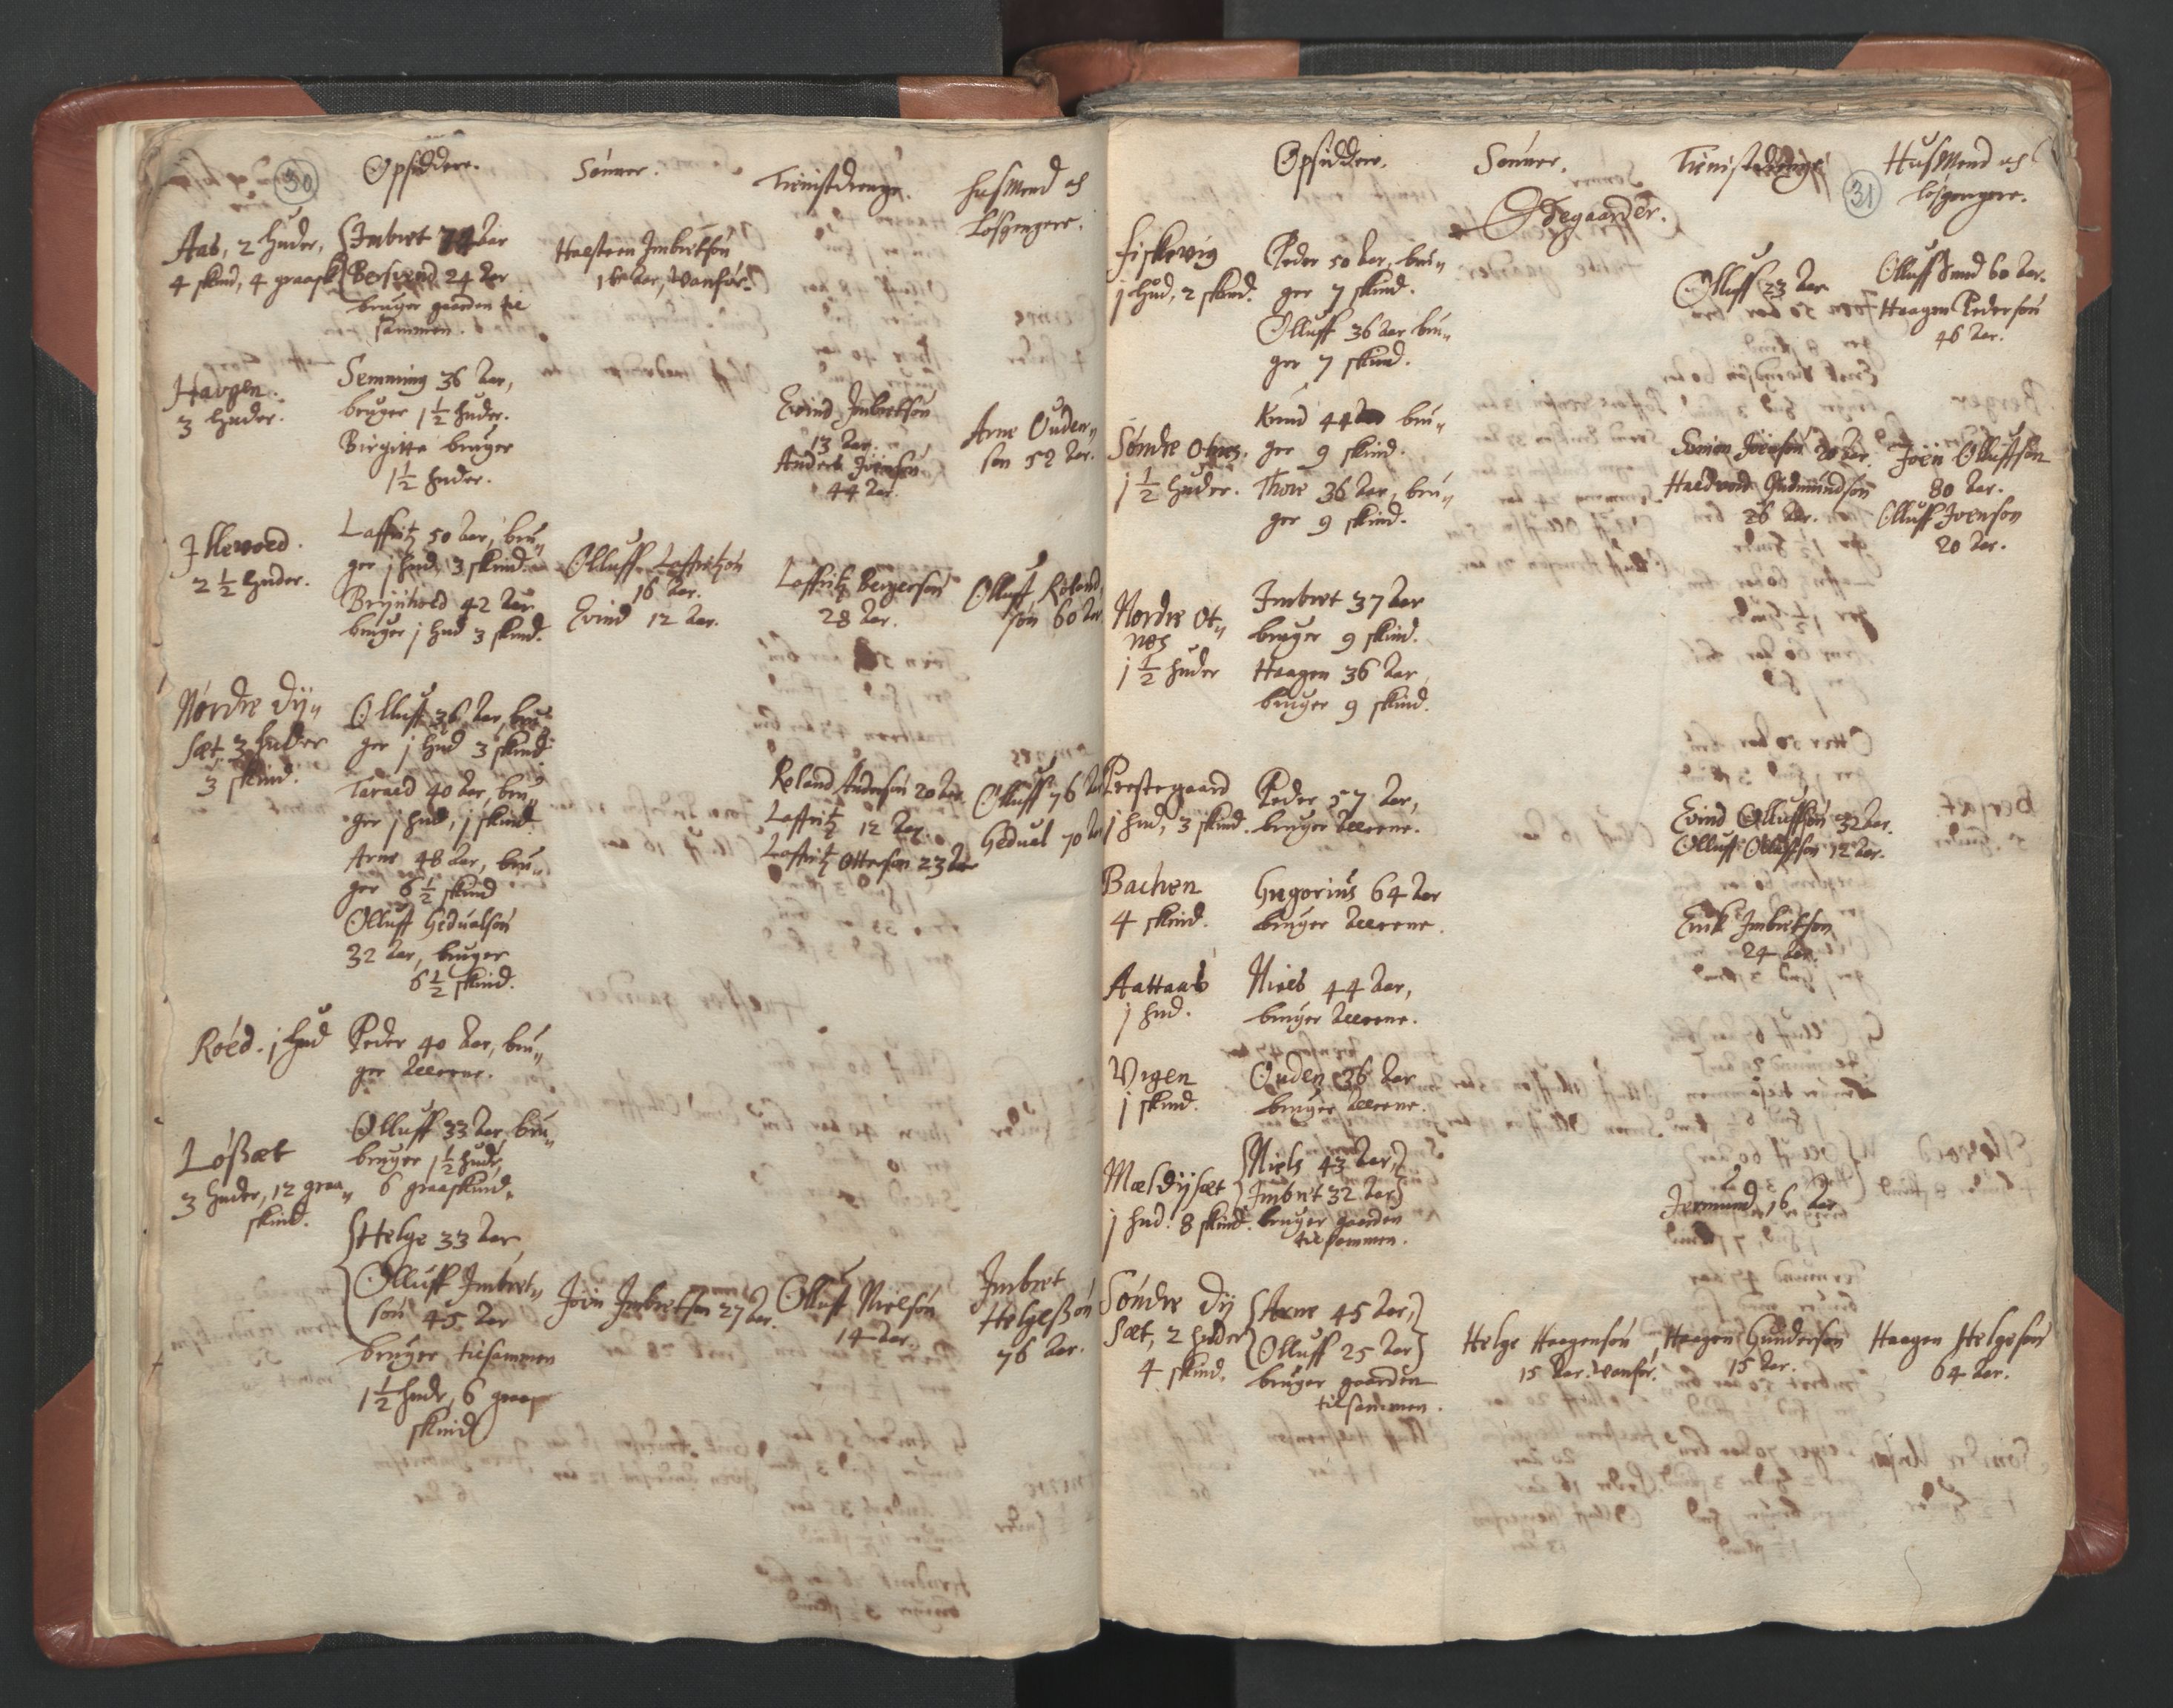 30
Opsiddere.
Sønner.
Tienistdrenge.
HusMend och
Løsgengere.
Aas, 2 huder,
4 skind, 4 graask
Imbret 74 Aar
Bersvend 24 Aar
bruger gaarden til
sammen.
Halsteen Imbretsøn
Aar, Vanför.
Haugen.
3 huder.
Semming 36 Aar,
bruger 1½ huder.
Birgitta bruger
1½ huder.
Evind Imbretsøn
13 Aar.
Anders Joensøn
44 Aar.
Arne Ouden„
søn 52 Aar.
Illevold.
2½ huder.
Laffritz 50 Aar, bru„
ger j hud, 3 skind.
Brynhold 42 Aar
bruger j hud 3 skind.
Olluff Laffritzøn
16 Aar.
Evind 12 Aar.
Laffritz Bergersøn
28 Aar.
Olluff Roland
søn 60 Aar
Nordre Dÿ„
sæt 3 hulder
3 skind.
Olluff 36 Aar, bru„
ger j hud 3 skind.
Tarald 40 Aar, bru„
ger j hud, j skind.
Arne 48 Aar, bru„
ger 6½ skind
Olluff Gedualsøn
32 Aar, bruger
6½ skind.
Roland Andersøn 20 Aar.
Laffritz 12 Aar.
Laffritz Ottersøn 23 Aar
Olluff 76 Aar
Gedual 70 Aar
Röed. j hud
Peder 40 Aar, bru„
ger Alleene.
Lößæt
3 huder, 12 graa„
skind.
Olluff 33 Aar, bru„
bruger 1½ hude,
6 graaskind.
Helge 33 Aar,
Olluff Imbret„
søn 45 Aar
bruger tilsammen
1½ hude, 6 graa
skind
Joen Imbretsøn 27 Aar.
Olluff Nielsøn
14 Aar.
Imbret
Helgeßøn
76 Aar.
31
Opsiddere.
Sønner.
Tienistedrenge
HusMend och
løsgengere.
Ødegaarder.
Fiskevig
j hud, 2 skind.
Peder 50 Aar, bru„
ger 7 skind.
Olluff 36 Aar bru„
ger 7 skind.
Olluff 23 Aar
Olluff Smed 60 Aar.
Haagen Pedersøn
46 Aar.
Søndre Otnes.
j ½ huder.
Knud 44 Aar bru„
ger 9 skind.
Thore 36 Aar, bru„
ger 9 skind.
Simon Joensøn 20 Aar.
Haldvord Gudmundsøn
26 Aar.
Joen Olluffsøn
80 Aar.
Olluff Joensøn
20 Aar.
Nordre Ot„
nes
j ½ huder
Imbret 37 Aar
bruger 9 skind.
Haagen 36 Aar,
bruger 9 skind.
Prestegaard
j hud, 3 skind.
Peder 57 Aar,
bruger Alleene.
Evind Olluffsøn 32 Aar.
Olluff Olluffsøn 12 Aar.
Bachen
4 skind.
Gregorius 64 Aar
bruger Alleene.
Erik Imbretsøn
24 Aar.
Aattaas
j hud.
Niels 44 Aar,
bruger Alleene.
Vigen
j skind.
Ouden 36 Aar
bruger Alleene.
Mældÿsæt
j hud. 8 skind.
Niels 43 Aar,
Imbret 32 Aar
bruger gaarden
tilsammen.
Jermund 16 Aar
Søndre Dÿ
sæt, 2 huder
4 skind.
Arne 45 Aar,
Olluff 25 Aar
bruger gaarden
tilsammen.
Helge Haagensøn
15 Aar. Vanför.
Haagen Gundersøn
15 Aar.
Haagen Helgesøn
64 Aar.